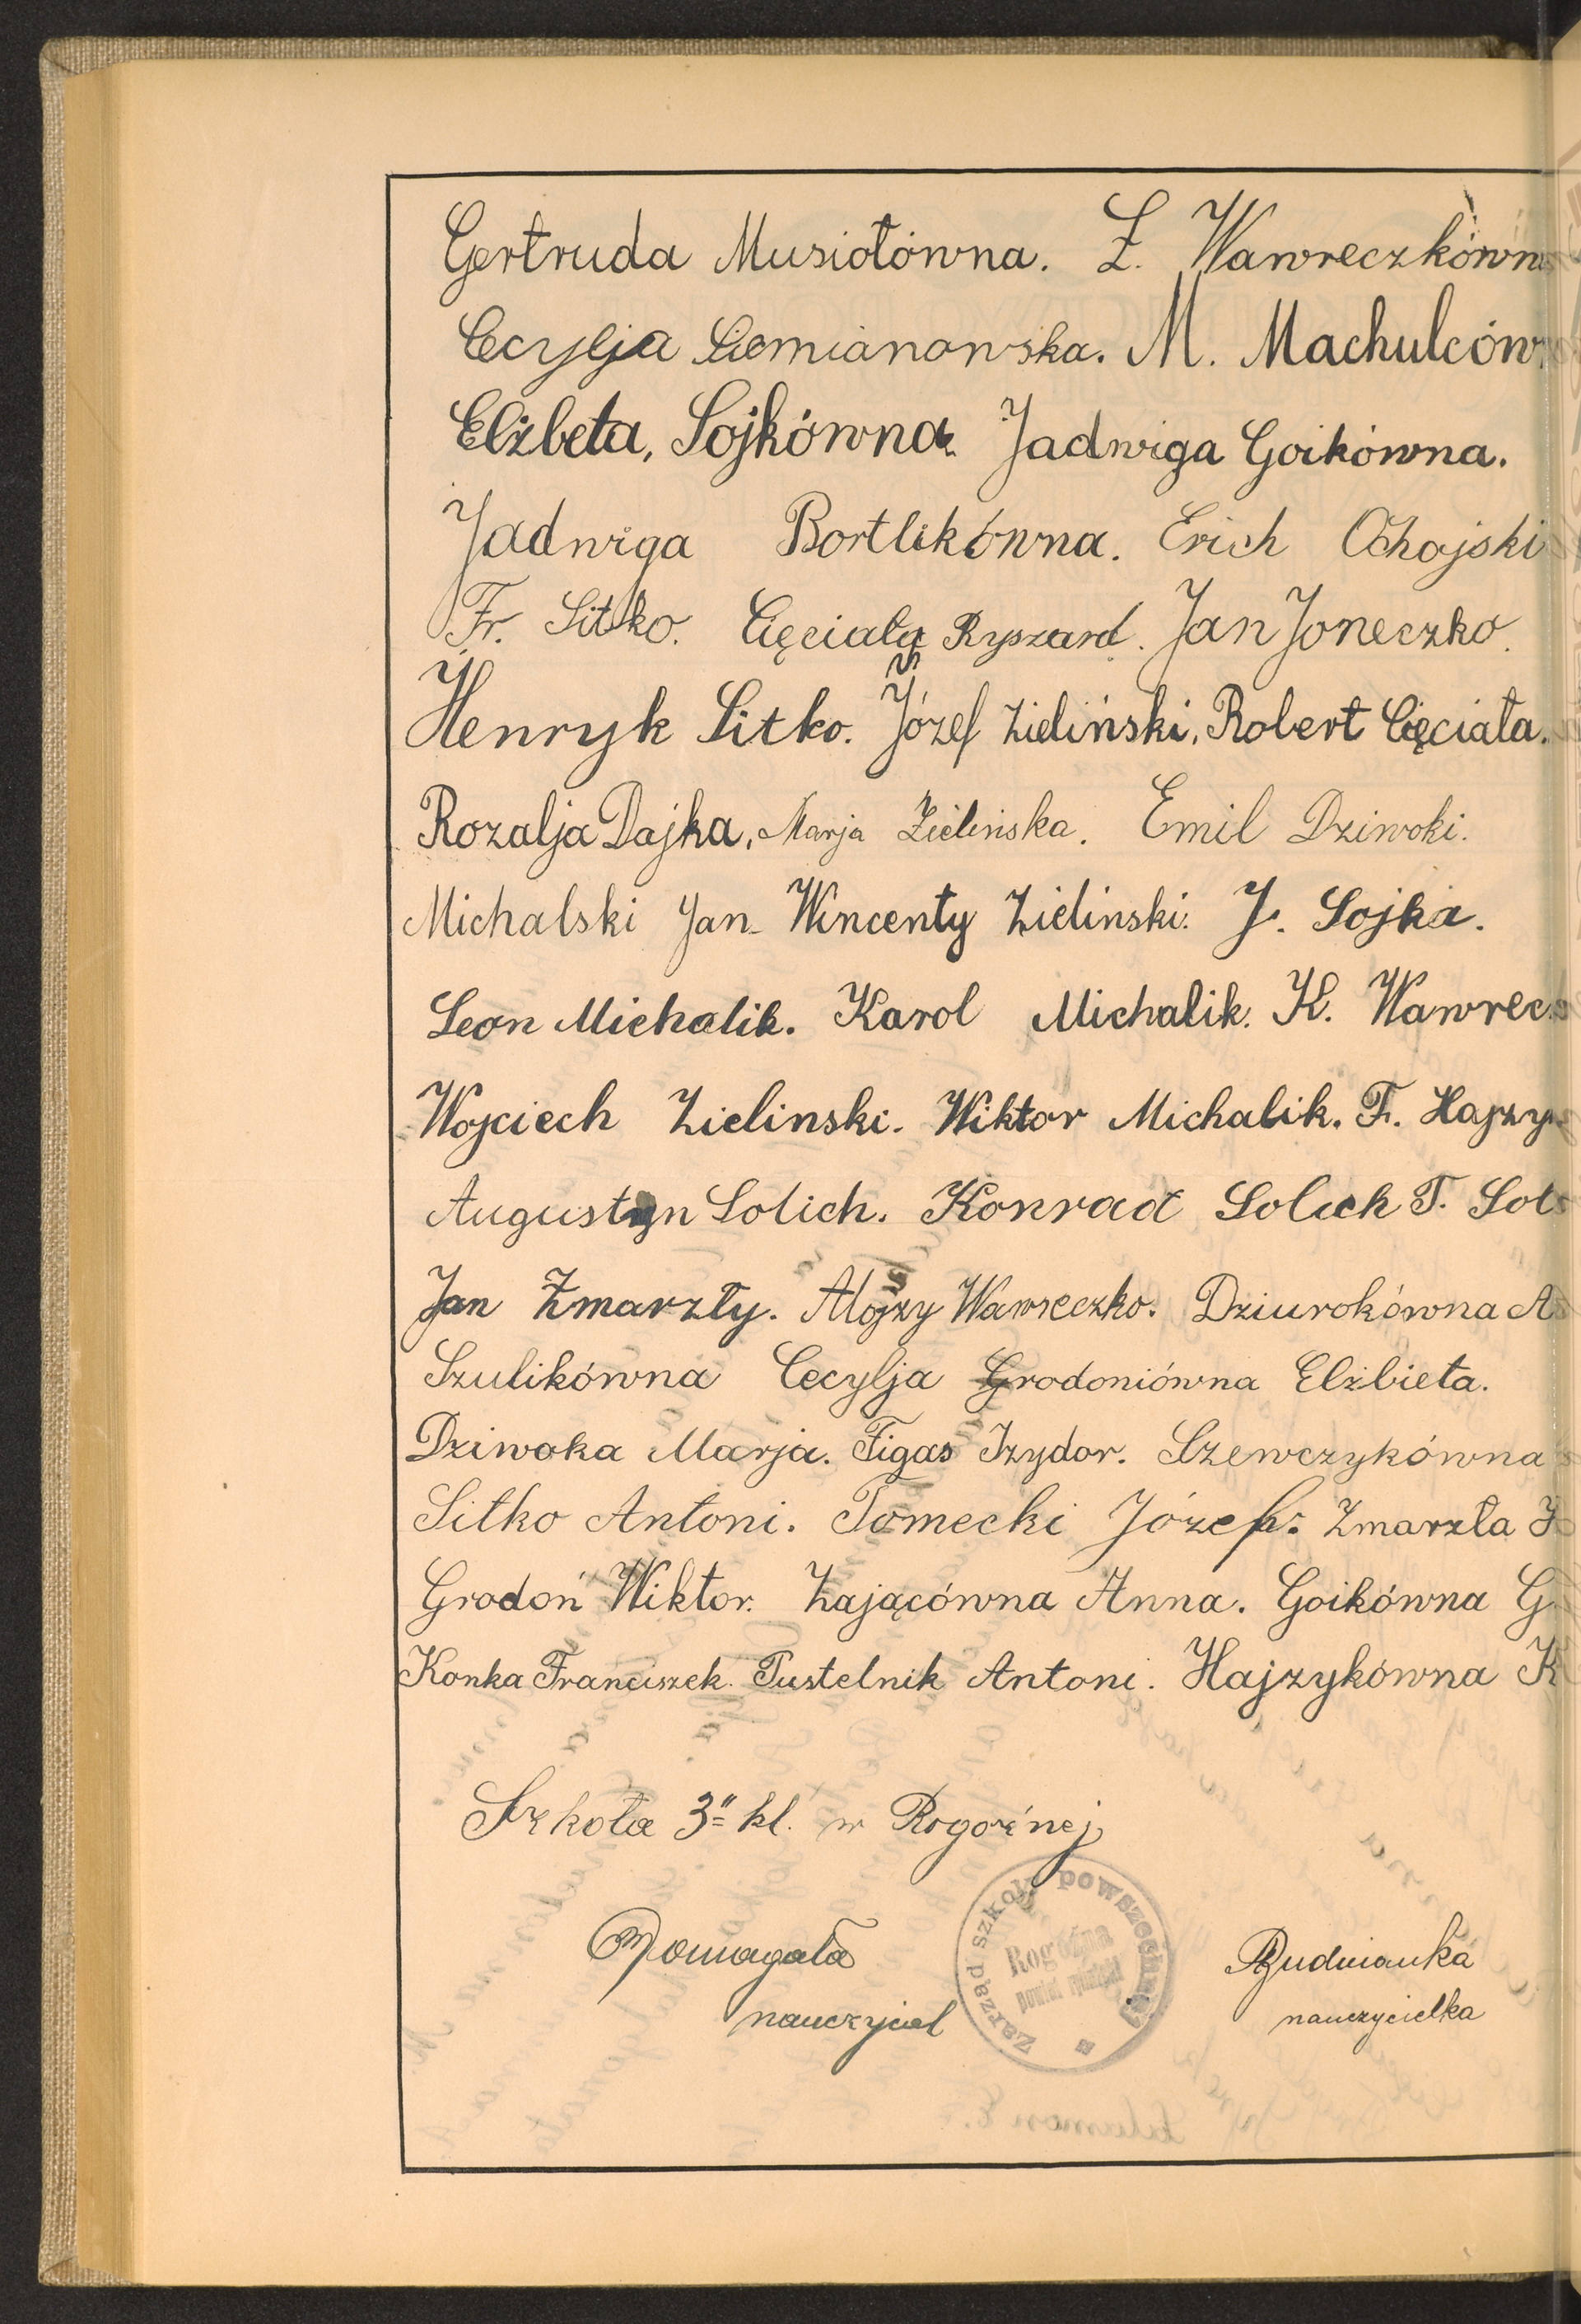 Gertruda Musiołówna. Ł. Wawreczkówn
Cecylja Siemianowska. M. Machulców
Elżbeta, Sojkówna. Jadwiga Goikówna.
Jadwiga Bortlikówna. Erich Ochojski
Fr. Sitko. Cięciała Ryszard. Jan Joneczko.
Henryk Sitko. Józef Zieliński, Robert Cięciała.
Rozalja Dajka, Marja Zielińska. Emil Dziwoki.
Michalski Jan. Wincenty Zielinski. J. Sojka.
Leon Michalik. Karol Michalik. K. Wawrec
Wojciech Zielinski. Wiktor Michalik. F. Hajzy
Augustyn Solich. Konrad Solich T. Sol
Jan Zmarzły. Alojzy Wawreczko. Dziurokówna A
Szulikówna Cecylja Grodoniówna Elżbieta.
Dziwoka Marja. Figas Izydor. Szewczykówna
Sitko Antoni. Tomecki Józef. Zmarzła J
Grodoń Wiktor. Zającówna Anna. Goikówna G
Konka Franciszek. Pustelnik Antoni. Hajzykówna K
Szkoła 3" kl. w Rogoźnej
Zarząd szkoły powszechnej
Rogoźna
powiat rybnicki
Domagała
nauczyciel
Rudnianka
nauczycielka